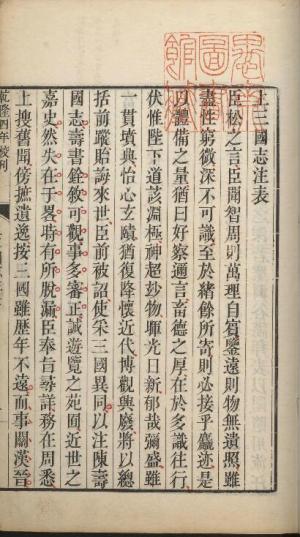 上三國志注表
臣松之言臣聞智周則萬理自賓鑒遠則物無遺照雖
盡性窮微深不可識至於緒餘所寄則必接乎麤迹是
以體備之量猶曰好察邇言畜德之厚在於多識往行
伏惟陛下道該淵極神超妙物暉光日新郁哉彌盛雖
一貫墳典怡心玄賾猶復降懷近代博觀興廢將以總
括前蹤貽誨來世臣前被詔使采三國異同以注陳壽
國志壽書銓敘可觀事多審正誠遊覽之苑囿近世之
嘉史然失在于畧時有所脫漏臣奉旨尋詳務在周悉
上搜舊聞傍摭遺逸按三國雖歷年不遠而事關漢晉
乾隆四年校刊